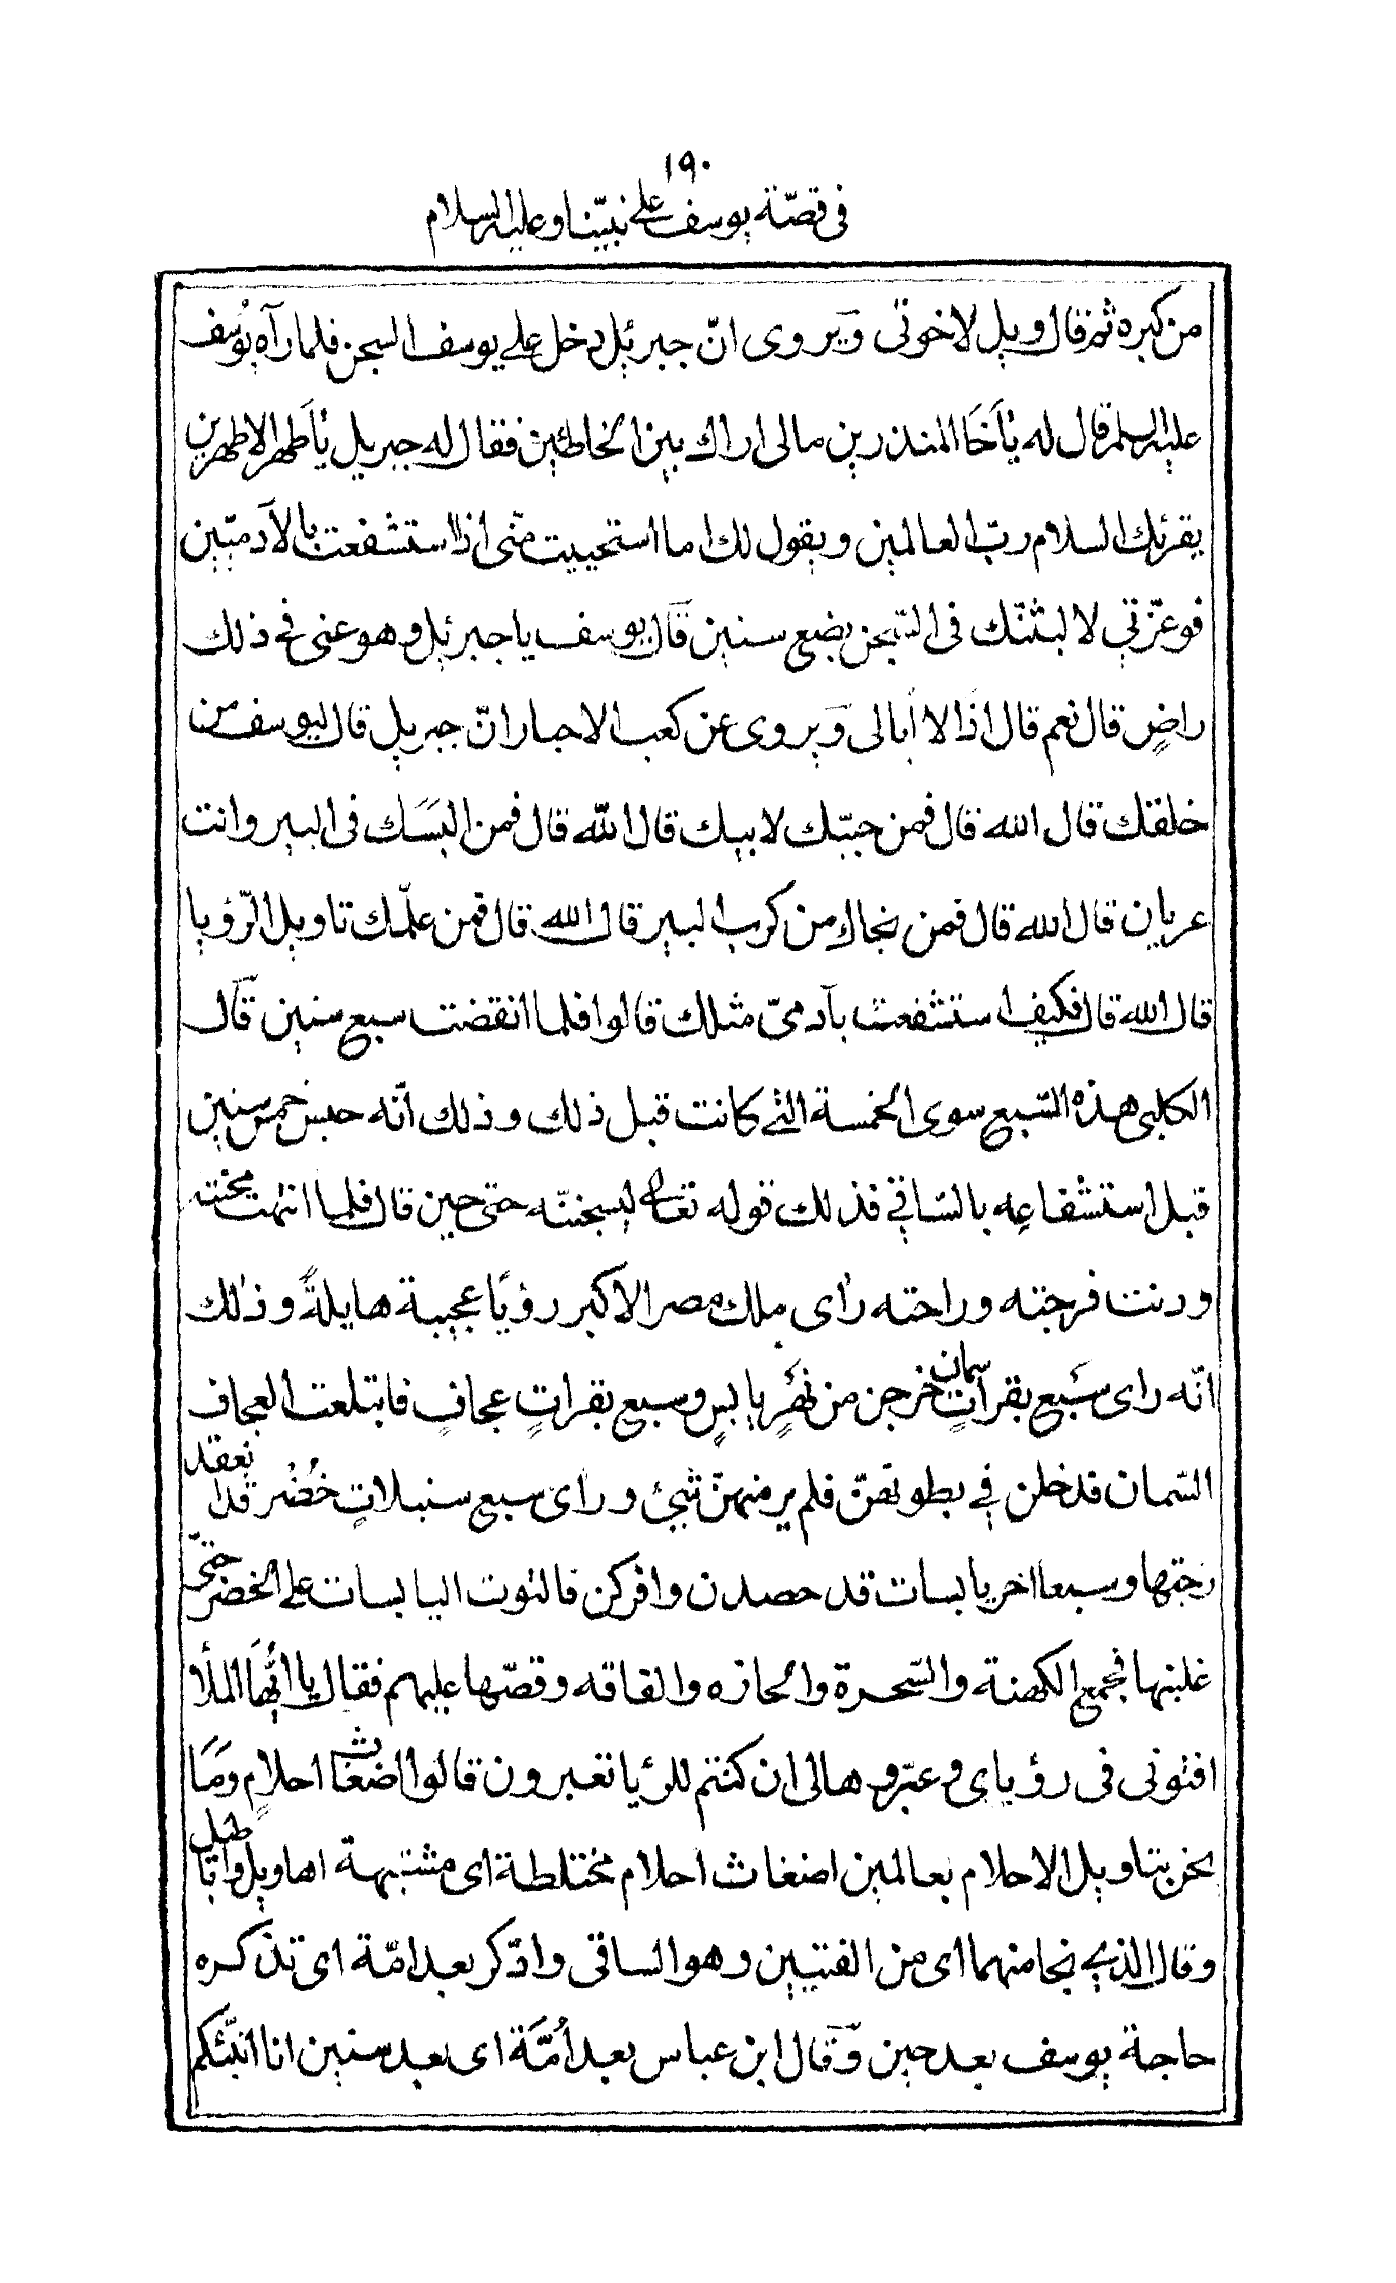 ١٩٠
في قصّة يوسف على نبيّنا وعليه السلام
من كبره ثم قال ويل لاخوتي ويروى انّ جبرئيل دخل على يوسف السجن فلما رآه يوسف
عليه السلم قال له يا أخا المنذرين مالى اراك بين الخاطئين فقال له جبريل يا طهر الاطهرين
يقرئك السلام ربّ العالمين ويقول لك اما استحييت منّى اذا استشفعت بالآدميّين
فوعزّتي لالبثنّك في السّجن بضع سنين قال يوسف يا جبرئيل وهو عنى في ذلك
راضٍ قال نعم قال اذا لا أبالى ويروى عن كعب الاحبار انّ جبريل قال ليوسف من
خلقك قال الله قال فمن حبّبك لابيك قال الله قال فمن البسك فى البير وانت
عريان قال الله قال فمن نجاك من كرب البير قال الله قال فمن علّمك تاويل الرّؤيا
قال الله قال فكيف استشفعت بآدمىّ مثلك قالوا فلما انقضت سبع سنين قال
الكلبى هذه السّبع سوى الخمسة التي كانت قبل ذلك وذلك انّه حبس خمس سنين
قبل استشفاعه بالسّاقي فذلك قوله تعالى ليسجننّه حتى حين قال فلما انتهت محنته
ودنت فرجته وراحته رأى ملك مصر الاكبر رؤيًا عجيبة هايلةً وذلك
انّه راى سبع بقراتٍ سمان خرجن من نهرٍ يابسٍ وسبع بقراتٍ عجافٍ فابتلعت العجاف
السّمان فدخلن في بطونهنّ فلم ير منهنّ شيئ ورأى سبع سنبلاتٍ خُضْر قد انعقد
حبّها وسبعا اخر يابسات قد حصدن وافركن فالتوت اليابسات على الخضر حتّى
غلبنها فجمع الكهنة والسّحرة والحازه والقافه وقصّها عليهم فقال يا ايّها الملأ
افتونى فى رؤياى وعبّروهالى ان كنتم للرؤيا تعبرون قالوا اضغاث احلامٍ وما
نحن بتاويل الاحلام بعالمين اضغاث احلام مختلطة اى مشتبهة اهاويل واباطيل
وقال الذي نجا منهما اى من الفتيين وهو الساقى وادّكر بعد امّة اى تذكره
حاجة يوسف بعد حين وقال ابن عباس بعد أمّة اى بعد سنين انا انبّئكم